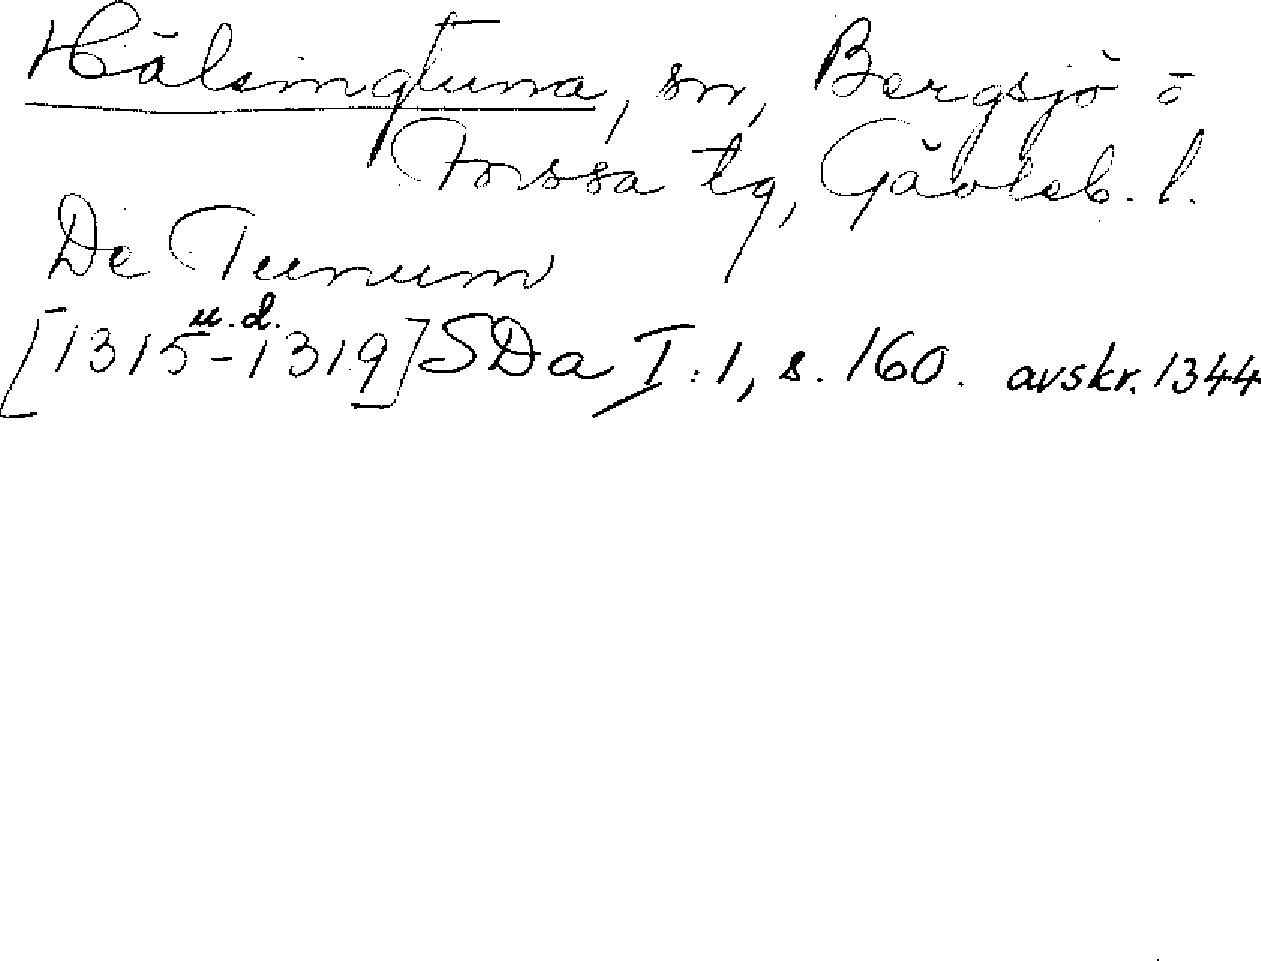 Hälsingtuna, sn, Bergsjö o
Forssa tg, Gävleb. l.
De Tunum
[1315-1319] u.d. SDa I:1, s. 160. avskr. 1344